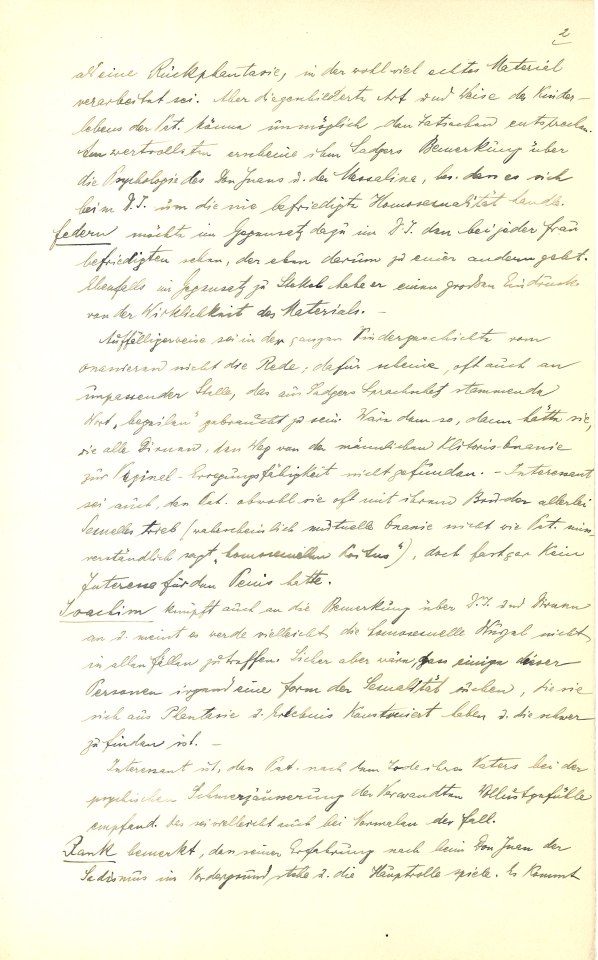 2
als eine Rückphantasie, in der wohl viel echtes Material
verarbeitet sei. Aber die geschilderte Art und Weise des Kinder-
lebens der Pat. könne unmöglich den Tatsachen entsprechen.
Am wertvollsten erscheine ihm Sadgers Bemerkung über
die Psychologie des Don Juans u. der Messalina, bes. dass es sich
beim D.J. um die nie befriedigte Homosexualität handle.
Federn möchte im Gegensatz dazu im D.J. den bei jeder Frau
befriedigten sehen, der eben darum zu einer anderen geht.
Ebenfalls im Gegensatz zu Stekel habe er einen großen Eindruck
von der Wirklichkeit des Materials. –
Auffälligerweise sei in der ganzen Kindergeschichte vom
onanieren nicht die Rede; dafür scheine, oft auch an
unpassender Stelle, das aus Sadgers Sprachschatz stammende
Wort „ " gebraucht zu sein. Wäre dem so, dann hätte sie,
wie alle Dirnen, den Weg von der männlichen Klitoris-Onanie
zur Vaginal-Erregungsfähigkeit nicht gefunden. – Interessant
sei auch, dass Pat. obwohl sie oft mit ihrem Bruder allerlei
Sexuelles trieb (wahrscheinlich mutuelle Onanie nicht wie Pat. miss-
verständlich sagt „homosexuellen Koitus"), doch fast gar kein
Interesse für den Penis hatte.
Joachim knüpft auch an die Bemerkung über D.J. und Dirnen
an u. meint es werde vielleicht die homosexuelle Wurzel nicht
in allen Fällen zutreffen. Sicher aber wäre, dass einige dieser
Personen irgend eine Form der Sexualität suchen, die sie
sich aus Phantasie u. Erlebnis konstruiert haben u. die schwer
zu finden ist. –
Interessant ist, dass Pat. nach dem Tode ihres Vaters bei der
psychischen Schmerzäusserung der Verwandten Wollustgefühle
empfand. Das sei vielleicht auch bei Normalen der Fall.
Rank bemerkt, dass seiner Erfahrung nach beim Don Juan der
Sadismus im Vordergrund stehe u. die Hauptrolle spiele. Es kommt